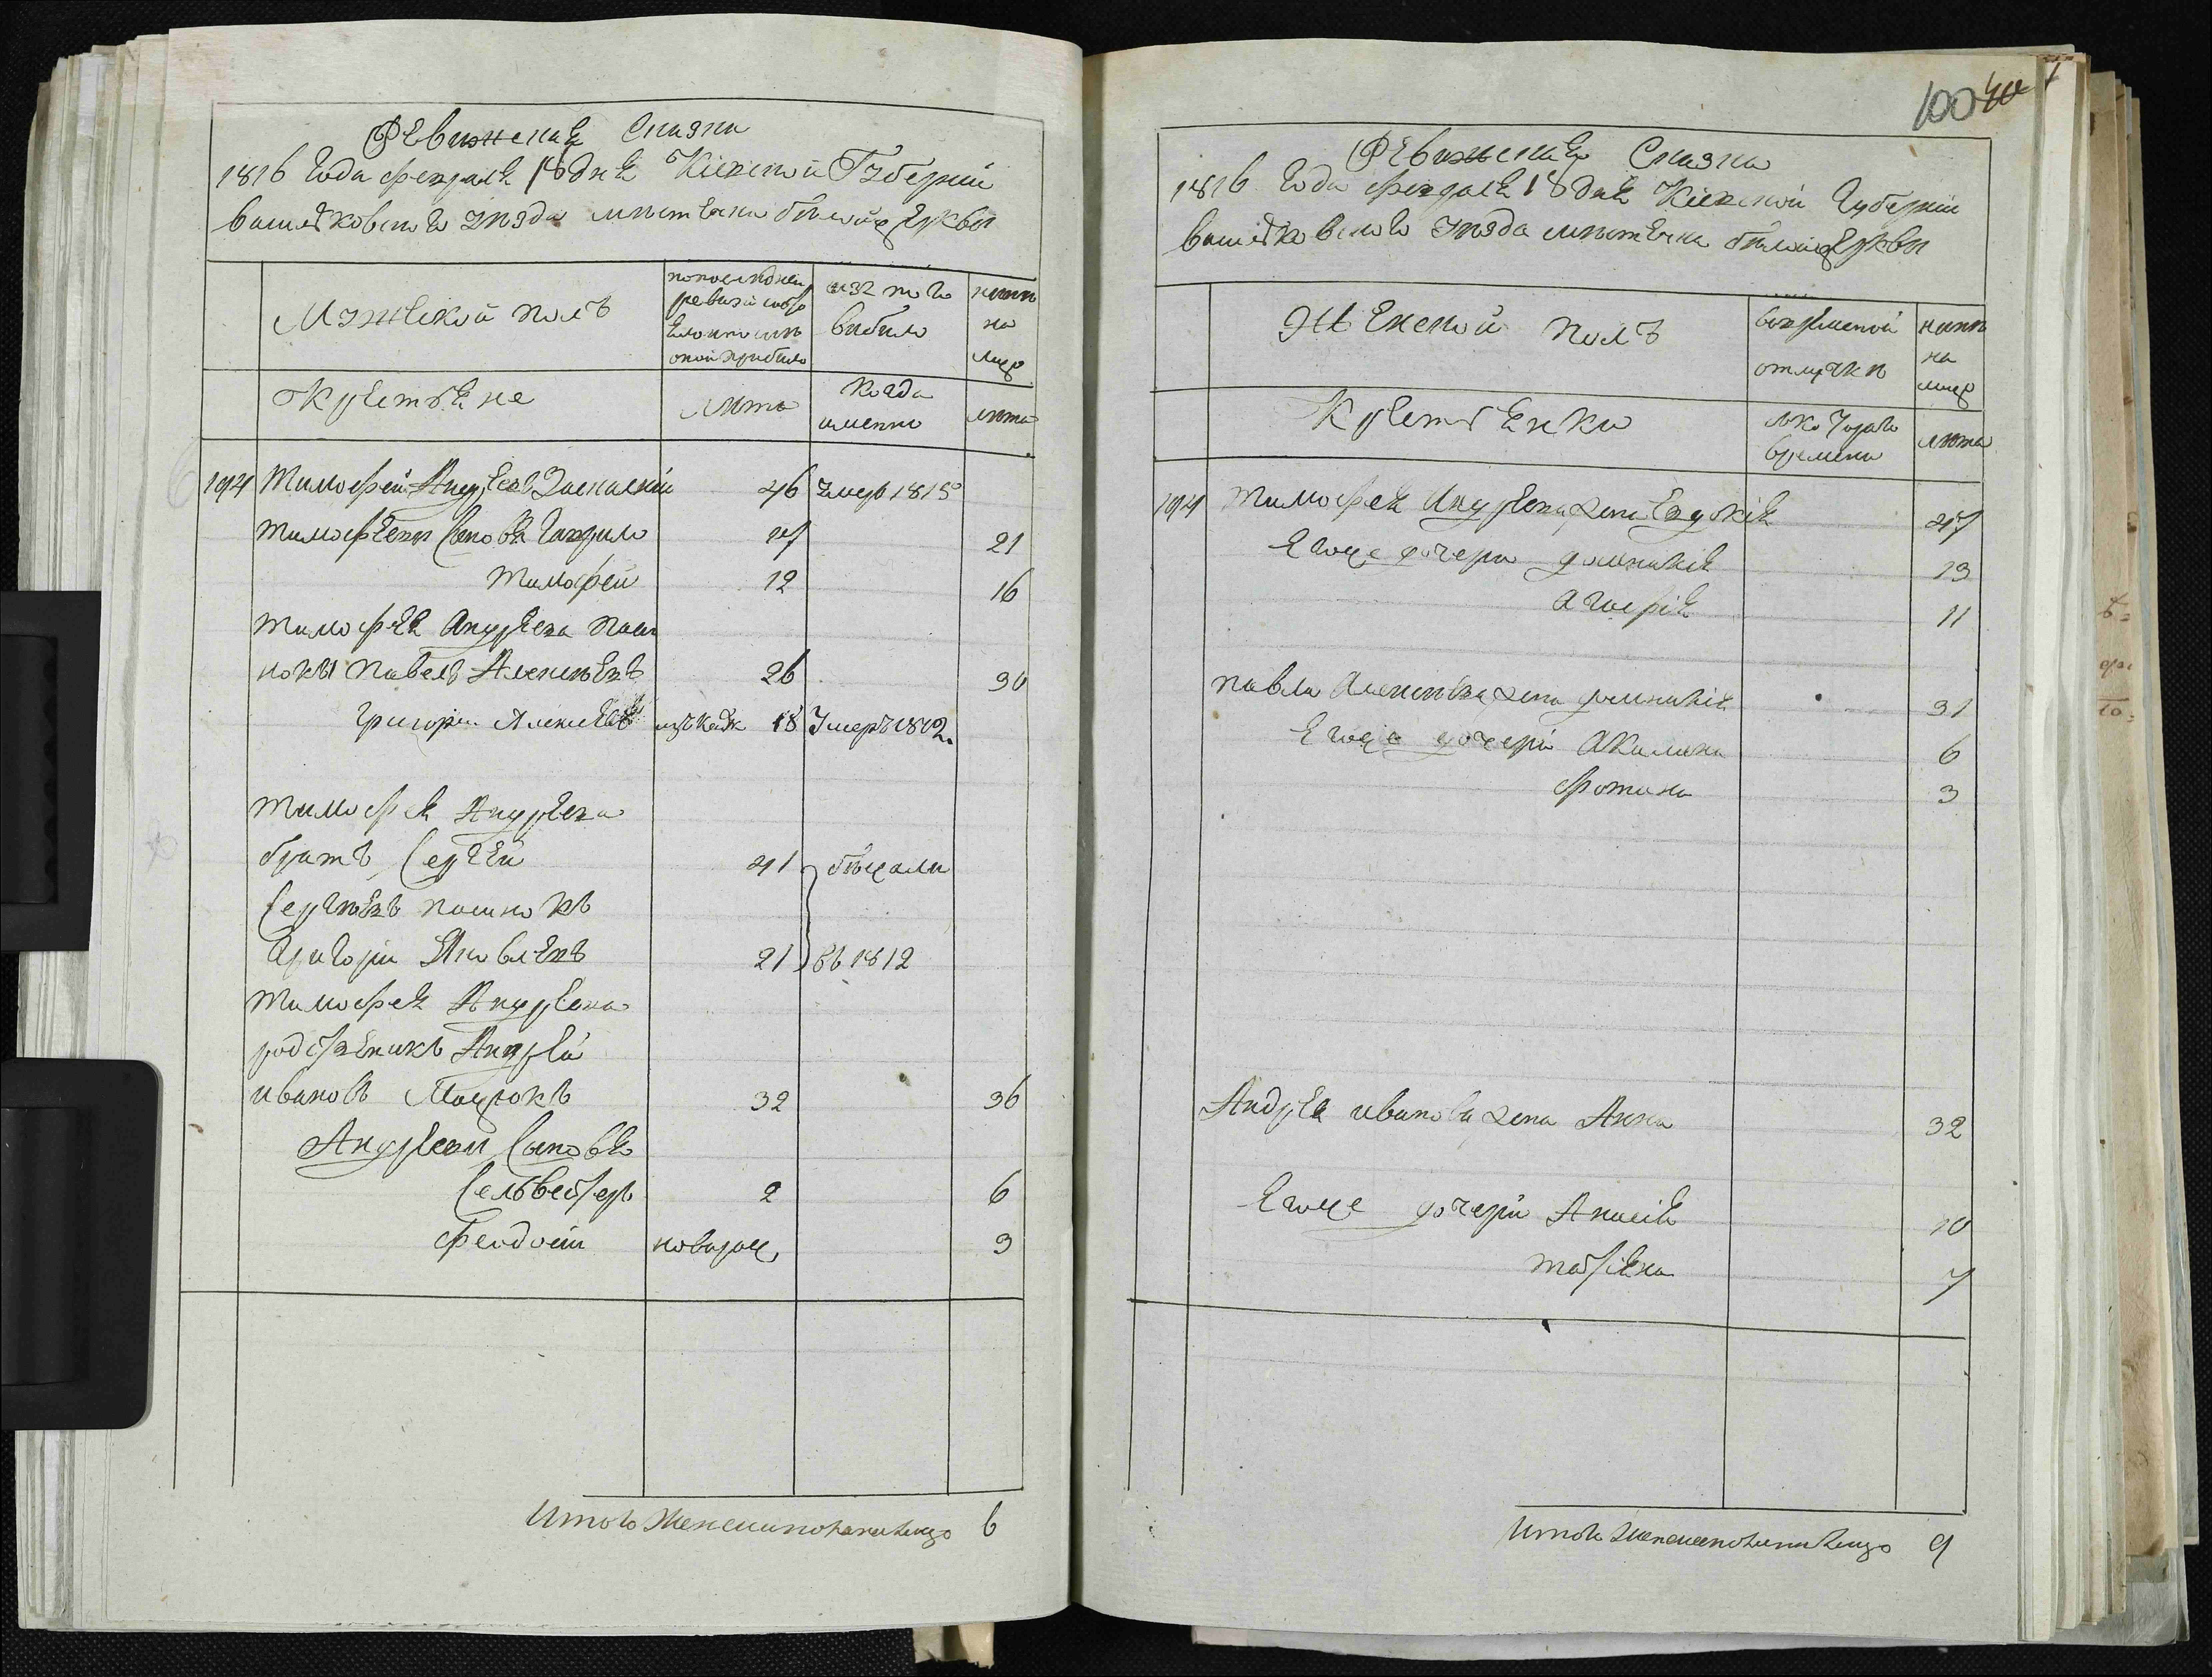 Ревижская Сказка
1816 года февраля 18 дня Кіевской Губерніи
Васильковского уезда местечка белой Церкви
Мужеской полъ
по последней
ревизіи состо
яло и после
оной прибыло
изъ того
выбыло
ныне
на
лицо
Крестьяне
лета
когда
именно
лета
194
Тимофей Андреевъ
46
умер 1815
Тимофеевы Сыновья Гаврило
17
21
Тимофей
12
16
Тимофея Андреева пасы
нокъ Павелъ Алексеевъ
26
30
Григорій Алексеевъ
18
Умеръ 1812
Тимофея Андреева
братъ Сергей
41
бежали
Сергеевъ пасынокъ
Григорій Яковлевъ
21
въ 1812
Тимофея Андреева
родственикъ Андрей
Ивановъ
32
36
Андреевы Сыновья
Селвестеръ
2
6
Феодосій
новорож
3
6
100
Ревижская Сказка
1816 года февраля 18 дня Кіевской Губерніи
Васильковского уезда местечка белой Церкви
Женской полъ
во временой
отлучки
ныне
на
лицо
Крестьянки
с которого
времени
лета
194
Тимофея Андреева жена Евдокія
47
Егоже дочери Домникія
13
Агафія
11
Павла Алексеева жена Домникія
31
Егоже дочери Акилина
6
Фотина
3
Андрея Иванова жена Анна
32
Егоже дочери Анасія
10
Татіяна
7
Итого женска пола на лицо 9